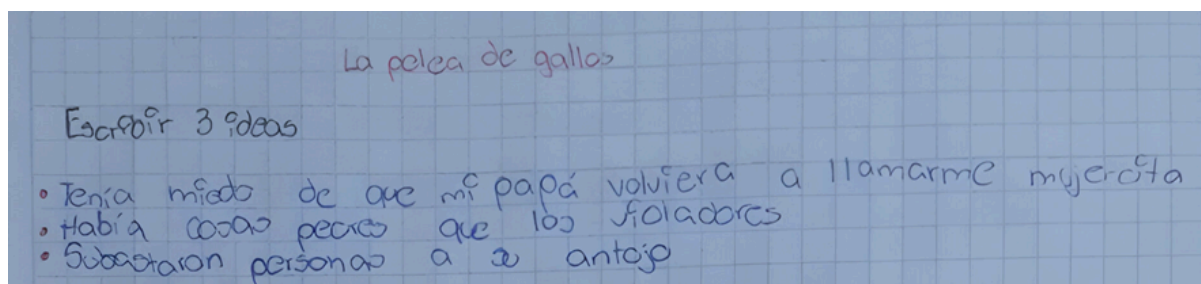 La pelea de gallos
Escribir 3 ideas
• Tenía miedo de que mi papá volviera a llamarme mujercita
• Había cosas peores que los violadores
• Subastaron personas a su antojo